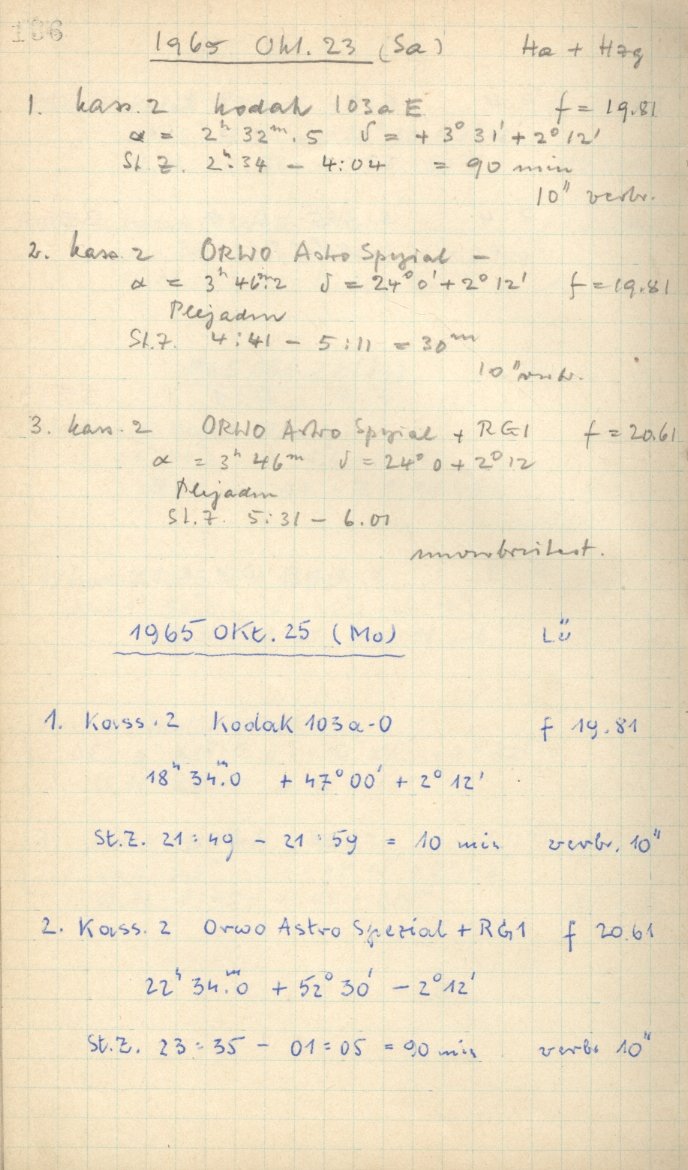 186
1965 Okt. 23 (Sa) Ha + Hzg
1. Kass. 2 Kodak 103a E f = 19.81
α = 2ʰ 32ᵐ.5 δ = + 3° 31' + 2° 12'
St. Z. 2ʰ:34 – 4:04 = 90 min
10" verbr.
2. Kass. 2 ORWO Astro Spezial –
α = 3ʰ 46ᵐ.2 δ = 24° 0' + 2° 12' f = 19.81
Plejaden
St. Z. 4:41 – 5:11 = 30ᵐ
10" verbr.
3. Kass. 2 ORWO Astro Spezial + RG1 f = 20.61
α = 3ʰ 46ᵐ δ = 24° 0 + 2° 12
Plejaden
St. Z. 5:31 – 6.01
unverbreitert.
1965 Okt. 25 (Mo) Lü
1. Kass. 2 Kodak 103a-O f 19.81
18ʰ 34ᵐ.0 + 47° 00' + 2° 12'
St.Z. 21:49 – 21:59 = 10 min verbr. 10"
2. Kass. 2 Orwo Astro Spezial + RG1 f 20.61
22ʰ 34ᵐ.0 + 52° 30' – 2° 12'
St.Z. 23:35 – 01:05 = 90 min verbr 10"